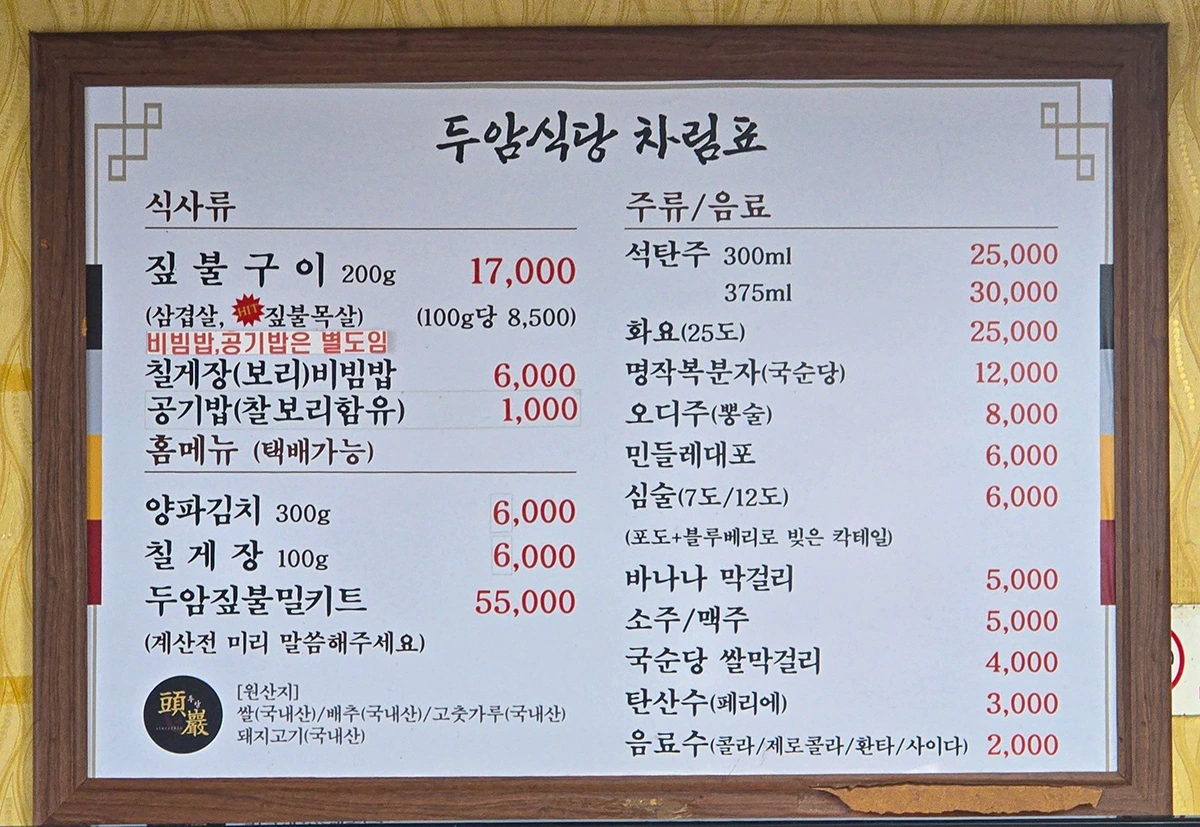 두암식당 차림표
식사류
짚불구이 200g 17,000
(삼겹살, HIT 짚불목살) (100g당 8,500)
비빔밥,공기밥은 별도임
칠게장(보리)비빔밥 6,000
공기밥(찰보리함유) 1,000
홈메뉴 (택배가능)
양파김치 300g 6,000
칠게장 100g 6,000
두암짚불밀키트 55,000
(계산전 미리 말씀해주세요)
頭巖
두암
[원산지]
쌀(국내산)/배추(국내산)/고춧가루(국내산)
돼지고기(국내산)
주류/음료
석탄주 300ml 25,000
375ml 30,000
화요(25도) 25,000
명작복분자(국순당) 12,000
오디주(뽕술) 8,000
민들레대포 6,000
심술(7도/12도) 6,000
(포도+블루베리로 빚은 칵테일)
바나나 막걸리 5,000
소주/맥주 5,000
국순당 쌀막걸리 4,000
탄산수(페리에) 3,000
음료수(콜라/제로콜라/환타/사이다) 2,000